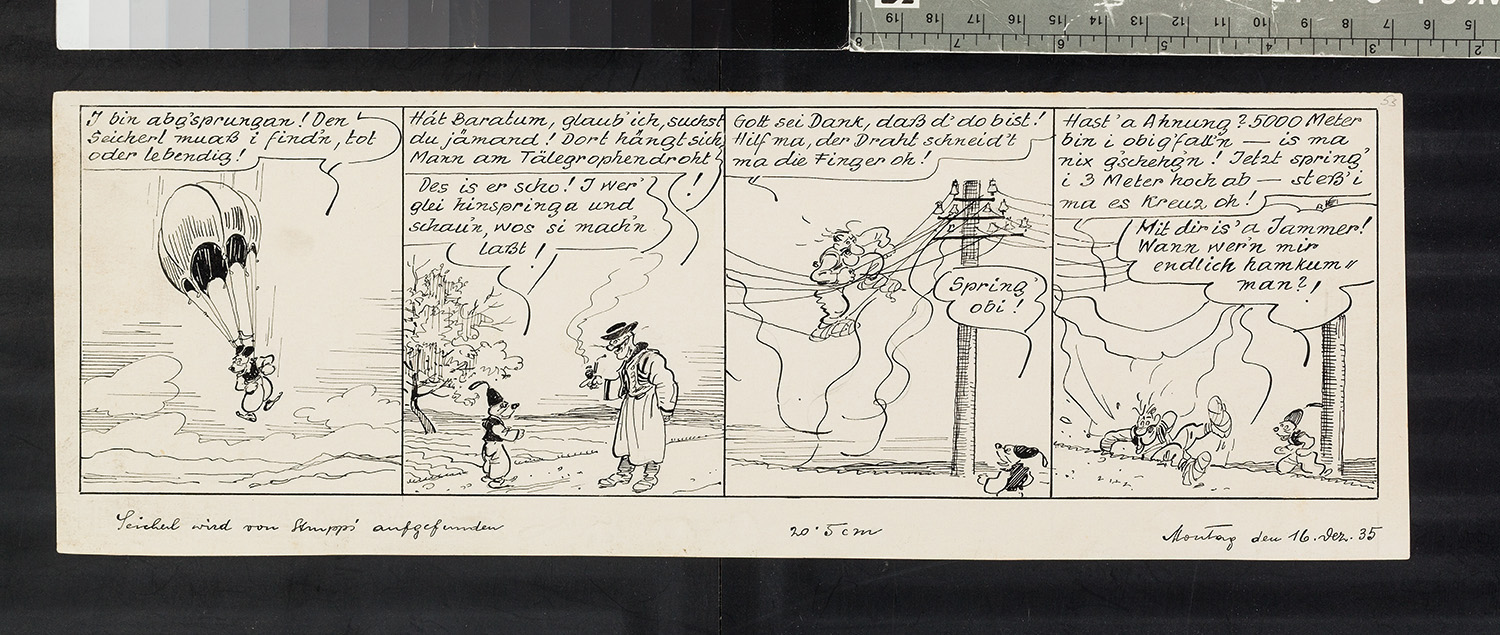 I bin abg'sprungan! Den
Seicherl muaß i find'n, tot
oder lebendig!
Hát Baratum, glaub' ich, suchst
du jämand! Dort hängt sich
Mann am Tälegrophendroht!
Des is er scho! I wer'
glei hinspringa und
schau'n, wos si mach'n
laßt!
Gott sei Dank, daß d' do bist!
Hilf ma, der Draht schneid't
ma die Finger oh!
Spring'
obi!
Hast' a Ahnung? 5000 Meter
bin i obig'fall'n — is ma
nix gscheg'n! Jetzt spring'
i 3 Meter hoch ab — steß' i
ma es Kreuz oh!
Mit dir is' a Jammer!
Wann wer'n mir
endlich hamkum"
man?!
53
Seicherl wird von Struppi aufgefunden
20·5 cm
Montag den 16. Dez. 35
19 18 17 16 15 14 13 12 11 10 9 8 7 6 5
8 7 6 5 4 3 2